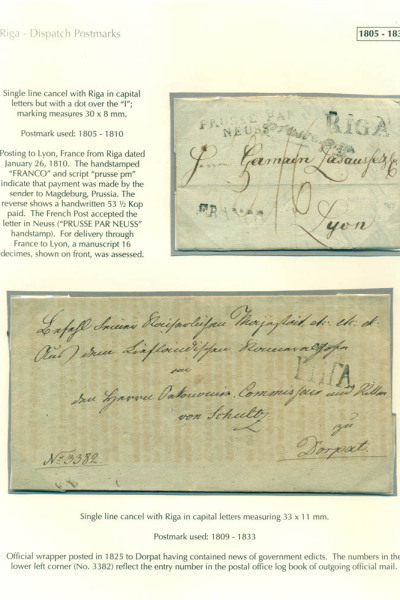 Riga - Dispatch Postmarks
1805 - 183
Single line cancel with Riga in capital
letters but with a dot over the "I";
marking measures 30 x 8 mm.
Postmark used: 1805 - 1810
Posting to Lyon, France from Riga dated
January 26, 1810. The handstamped
"FRANCO" and script "prusse pm"
indicate that payment was made by the
sender to Magdeburg, Prussia. The
reverse shows a handwritten 53 ½ Kop
paid. The French Post accepted the
letter in Neuss ("PRUSSE PAR NEUSS"
handstamp). For delivery through
France to Lyon, a manuscript 16
decimes, shown on front, was assessed.
PRUSSE PAR
NEUSS
RIGA
Germain
16
FRANCO
Lyon
Befehl Seiner Kaiserlichen Majestät, etc. etc. etc.
Aus dem Livländischen
an
den Herrn Commissair und Ritter
von Schultz
zu
Dorpat.
RIGA
No 3382
Single line cancel with Riga in capital letters measuring 33 x 11 mm.
Postmark used: 1809 - 1833
Official wrapper posted in 1825 to Dorpat having contained news of government edicts. The numbers in the
lower left corner (No. 3382) reflect the entry number in the postal office log book of outgoing official mail.